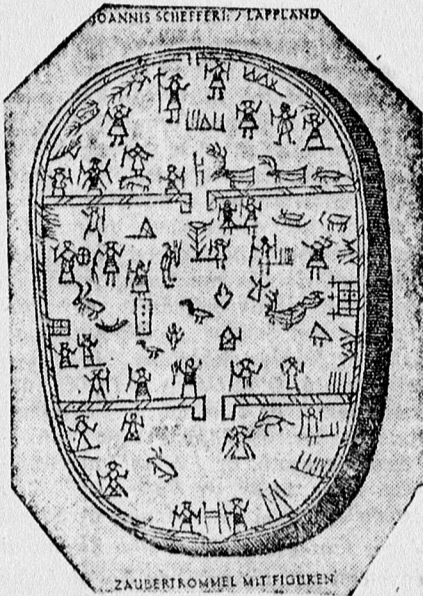 JOANNIS SCHEFFERI: / LAPPLAND
ZAUBERTROMMEL MIT FIGUREN